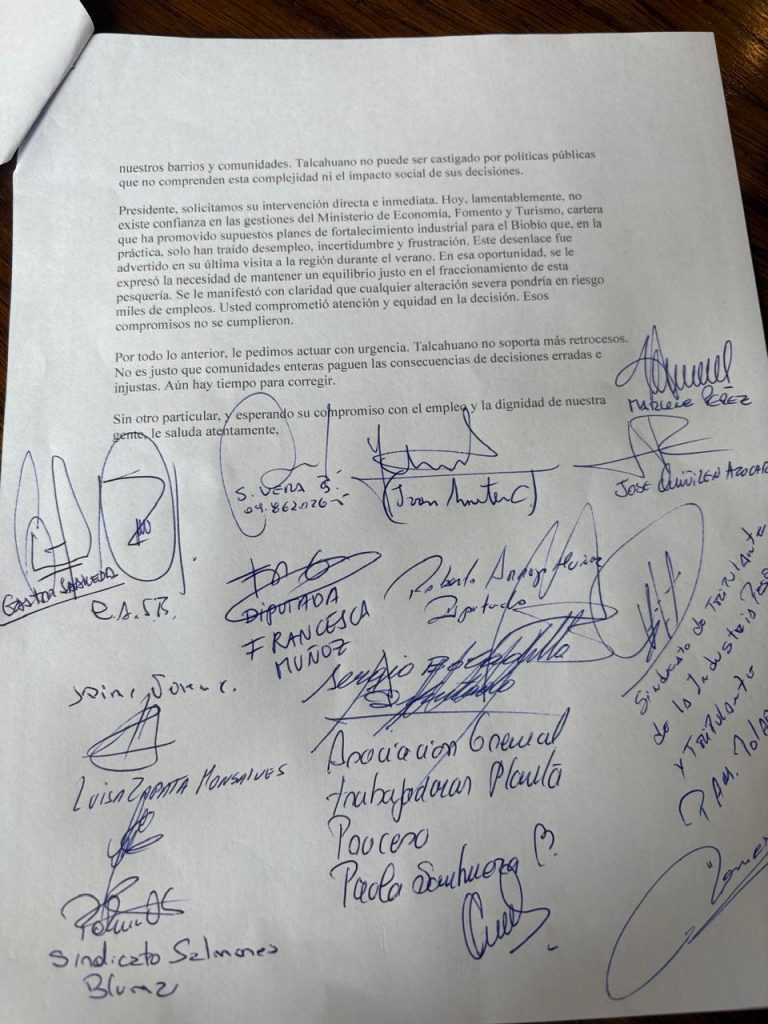 nuestros barrios y comunidades. Talcahuano no puede ser castigado por políticas públicas
que no comprenden esta complejidad ni el impacto social de sus decisiones.
Presidente, solicitamos su intervención directa e inmediata. Hoy, lamentablemente, no
existe confianza en las gestiones del Ministerio de Economía, Fomento y Turismo, cartera
que ha promovido supuestos planes de fortalecimiento industrial para el Biobío que, en la
práctica, solo han traído desempleo, incertidumbre y frustración. Este desenlace fue
advertido en su última visita a la región durante el verano. En esa oportunidad, se le
expresó la necesidad de mantener un equilibrio justo en el fraccionamiento de esta
pesquería. Se le manifestó con claridad que cualquier alteración severa pondría en riesgo
miles de empleos. Usted comprometió atención y equidad en la decisión. Esos
compromisos no se cumplieron.
Por todo lo anterior, le pedimos actuar con urgencia. Talcahuano no soporta más retrocesos.
No es justo que comunidades enteras paguen las consecuencias de decisiones erradas e
injustas. Aún hay tiempo para corregir.
Sin otro particular, y esperando su compromiso con el empleo y la dignidad de nuestra
gente, le saluda atentamente,
PÉREZ
S. VERA B.
JOSE
GASTON SAAVEDRA
DIPUTADA
FRANCESCA
MUÑOZ
Roberto
Diputado
Sergio
Sindicato de Tripulante
de la Industria
y Tripulante
LUISA ZAPATA MONSALVES
Asociacion Gremial
trabajadoras Planta
Paola
Sindicato Salmones